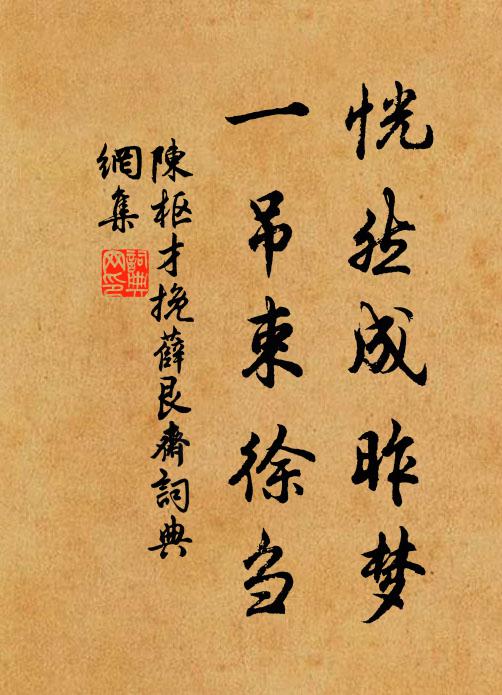 恍然成昨梦
一吊束徐刍
陳枢才挽薛艮齋詞典
網集
詞典
网印